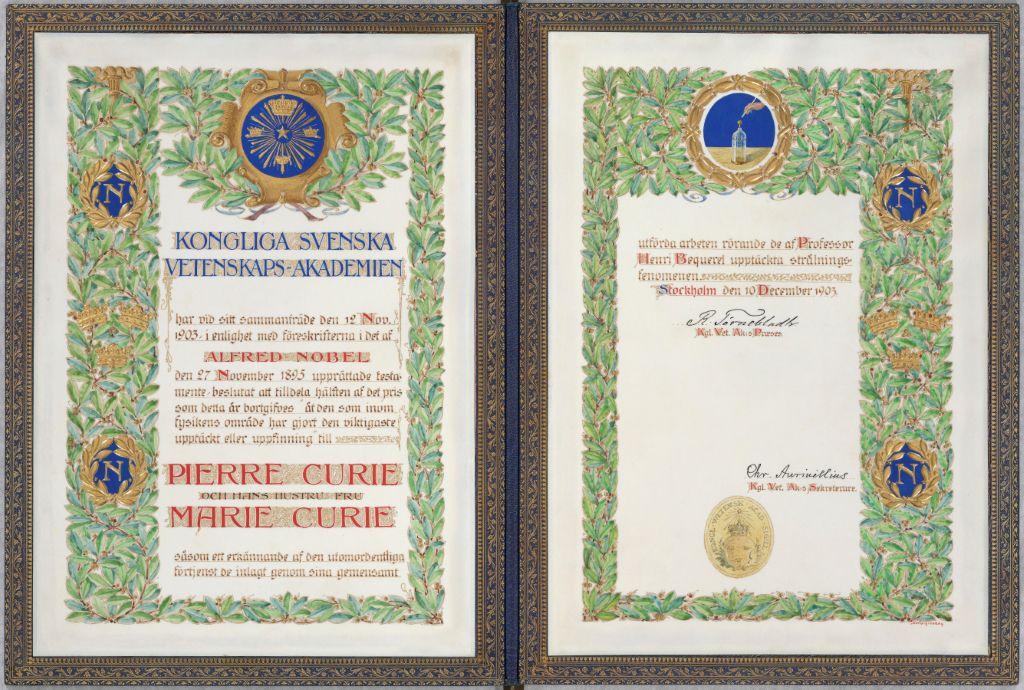 N
KONGLIGA SVENSKA
VETENSKAPS-AKADEMIEN
har vid sitt sammanträde den 12 Nov.
1903 i enlighet med föreskrifterna i det af
ALFRED NOBEL
den 27 November 1895 upprättade testa-
mente beslutat att tilldela hälften af det pris
som detta år bortgifves åt den som inom
fysikens område har gjort den viktigaste
upptäckt eller uppfinning till
PIERRE CURIE
OCH HANS HUSTRU FRU
MARIE CURIE
såsom ett erkännande af den utomordentliga
förtjenst de inlagt genom sina gemensamt
N
N
utförda arbeten rörande de af Professor
Henri Bequerel upptäckta strålnings-
fenomenen
Stockholm den 10 December 1903
R. Törnebladh
Kgl. Vet. Ak:s Præses.
Chr. Aurivillius
Kgl. Vet. Ak:s Sekreterare.
N